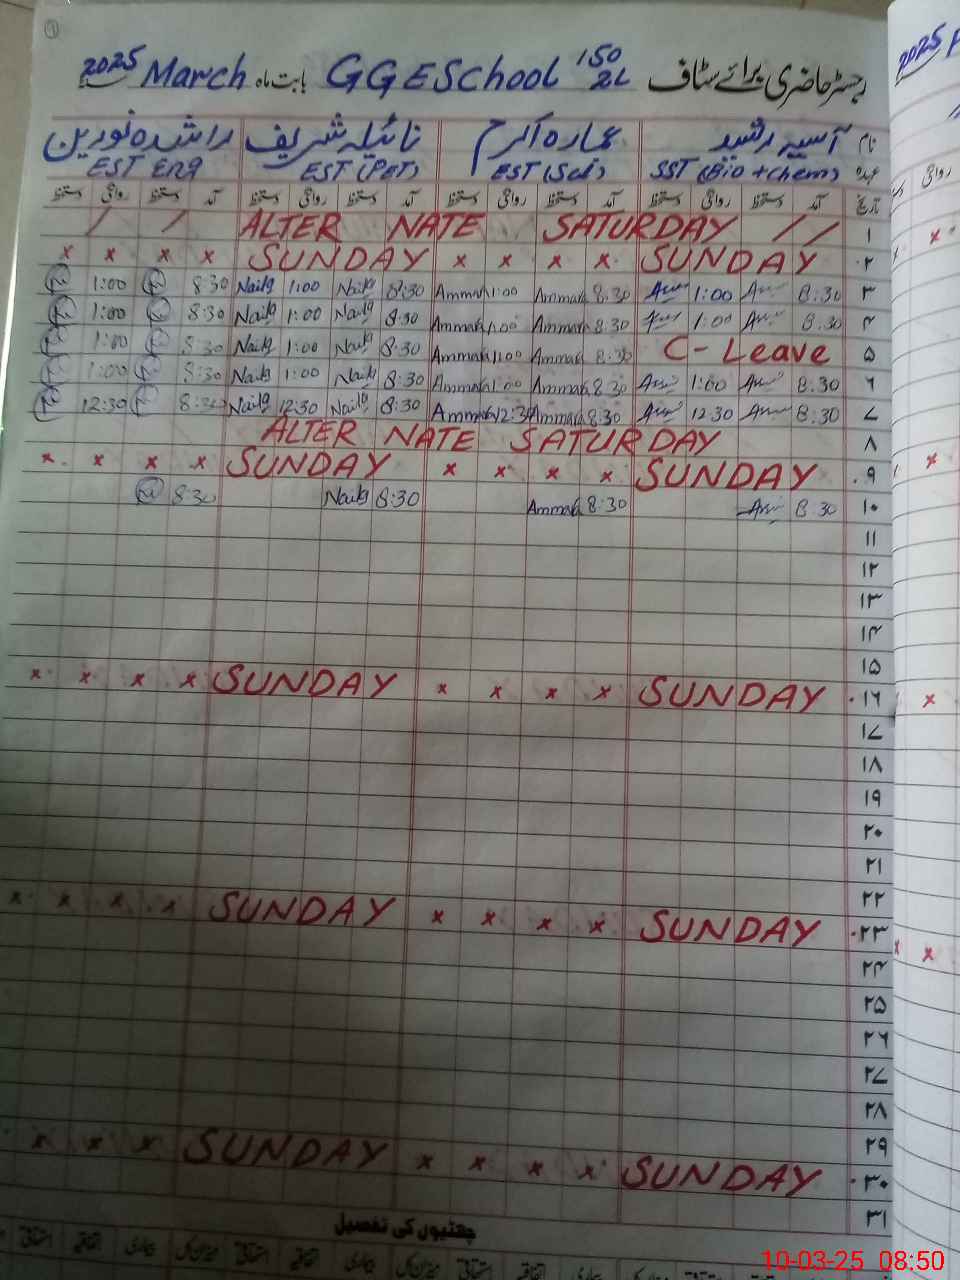 رجسٹر حاضری برائے سٹاف GGESchool 150/2L بابت ماہ March 2025
نام آسیہ رشید عمارہ اکرم نائیلہ شریف راشدہ نورین
عہدہ SST (Bio + Chem) EST (Sci) EST (PET) EST Eng
تاریخ آمد دستخط روانگی دستخط آمد دستخط روانگی دستخط آمد دستخط روانگی دستخط آمد دستخط روانگی دستخط
/ / ALTER NATE SATURDAY / / ۱
x x x x SUNDAY x x x x SUNDAY ۲
1:00 8:30 Naila 1:00 Naila 8:30 Ammarh 1:00 Ammarh 8:30 1:00 8:30 ۳
1:00 8:30 Naila 1:00 Naila 8:30 Ammarh 1:00 Ammarh 8:30 1:00 8:30 ۴
1:00 8:30 Naila 1:00 Naila 8:30 Ammarh 1:00 Ammarh 8:30 C-Leave ۵
1:00 8:30 Naila 1:00 Naila 8:30 Ammarh 1:00 Ammarh 8:30 1:00 8:30 ۶
12:30 8:30 Naila 12:30 Naila 8:30 Ammarh 12:30 Ammarh 8:30 12:30 8:30 ۷
ALTER NATE SATURDAY ۸
x x x x SUNDAY x x x x SUNDAY ۹
8:30 Naila 8:30 Ammarh 8:30 8:30 ۱۰
۱۱
۱۲
۱۳
۱۴
۱۵
x x x x SUNDAY x x x x SUNDAY ۱۶
۱۷
۱۸
۱۹
۲۰
۲۱
۲۲
x x x x SUNDAY x x x x SUNDAY ۲۳
۲۴
۲۵
۲۶
۲۷
۲۸
۲۹
x x x SUNDAY x x x x SUNDAY ۳۰
۳۱
چھٹیوں کی تفصیل
میزان کل بیماری اتفاقیہ استحقاقی میزان کل بیماری اتفاقیہ استحقاقی
10-03-25 08:50